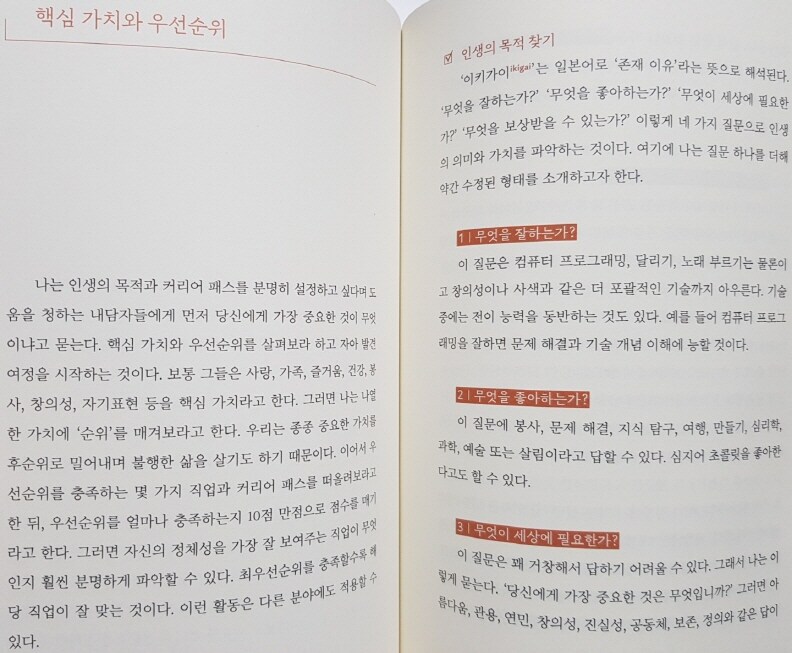 핵심 가치와 우선순위
나는 인생의 목적과 커리어 패스를 분명히 설정하고 싶다며 도
움을 청하는 내담자들에게 먼저 당신에게 가장 중요한 것이 무엇
이냐고 묻는다. 핵심 가치와 우선순위를 살펴보라 하고 자아 발견
여정을 시작하는 것이다. 보통 그들은 사랑, 가족, 즐거움, 건강, 봉
사, 창의성, 자기표현 등을 핵심 가치라고 한다. 그러면 나는 나열
한 가치에 ‘순위’를 매겨보라고 한다. 우리는 종종 중요한 가치를
후순위로 밀어내며 불행한 삶을 살기도 하기 때문이다. 이어서 우
선순위를 충족하는 몇 가지 직업과 커리어 패스를 떠올려보라고
한 뒤, 우선순위를 얼마나 충족하는지 10점 만점으로 점수를 매기
라고 한다. 그러면 자신의 정체성을 가장 잘 보여주는 직업이 무엇
인지 훨씬 분명하게 파악할 수 있다. 최우선순위를 충족할수록 해
당 직업이 잘 맞는 것이다. 이런 활동은 다른 분야에도 적용할 수
있다.
인생의 목적 찾기
‘이키가이ikigai’는 일본어로 ‘존재 이유’라는 뜻으로 해석된다.
‘무엇을 잘하는가?’ ‘무엇을 좋아하는가?’ ‘무엇이 세상에 필요한
가?’ ‘무엇을 보상받을 수 있는가?’ 이렇게 네 가지 질문으로 인생
의 의미와 가치를 파악하는 것이다. 여기에 나는 질문 하나를 더해
약간 수정된 형태를 소개하고자 한다.
1 | 무엇을 잘하는가?
이 질문은 컴퓨터 프로그래밍, 달리기, 노래 부르기는 물론이
고 창의성이나 사색과 같은 더 포괄적인 기술까지 아우른다. 기술
중에는 전이 능력을 동반하는 것도 있다. 예를 들어 컴퓨터 프로그
래밍을 잘하면 문제 해결과 기술 개념 이해에 능할 것이다.
2 | 무엇을 좋아하는가?
이 질문에 봉사, 문제 해결, 지식 탐구, 여행, 만들기, 심리학,
과학, 예술 또는 살림이라고 답할 수 있다. 심지어 초콜릿을 좋아한
다고도 할 수 있다.
3 | 무엇이 세상에 필요한가?
이 질문은 꽤 거창해서 답하기 어려울 수 있다. 그래서 나는 이
렇게 묻는다. ‘당신에게 가장 중요한 것은 무엇입니까?’ 그러면 아
름다움, 관용, 연민, 창의성, 진실성, 공동체, 보존, 정의와 같은 답이